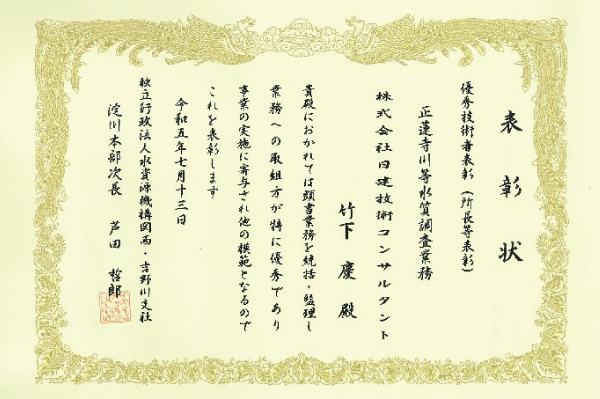 表彰状
優秀技術者表彰(所長等表彰)
正蓮寺川等水質調査業務
株式会社日建技術コンサルタント
竹下 慶 殿
貴殿におかれては頭書業務を統括・監理し
業務への取組方が特に優秀であり
事業の実施に寄与され他の模範となるので
これを表彰します
令和五年七月十三日
独立行政法人水資源機構関西・吉野川支社
淀川本部次長 芦田 哲郎